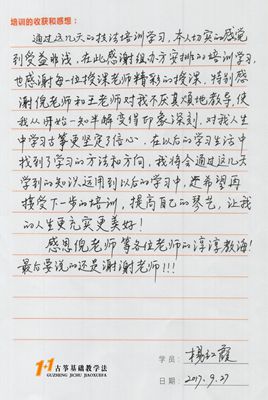 培训的收获和感想:
通过这几天的技法培训学习,本人切实的感觉
到受益非浅。在此感谢组办方安排的培训学习,
也感谢每一位授课老师精彩的授课。特别感
谢倪老师和王老师对我不厌其烦地教导,使
我从开始一知半解变得印象深刻,对我人生
中学习古筝更坚定了信心,在以后的学习生活中
找到了学习的方法和方向,我将会通过这几天
学到的知识运用到以后的学习中,还希望再
接受下一步的培训,提高自己的琴艺,让我
的人生更充实更美好!
感恩倪老师等各位老师的淳淳教海!
最后要说的还是谢谢老师!!!
1+1古筝基础教学法
GUZHENG JICHU JIAOXUEFA
学员:杨红霞
日期:2017.9.27